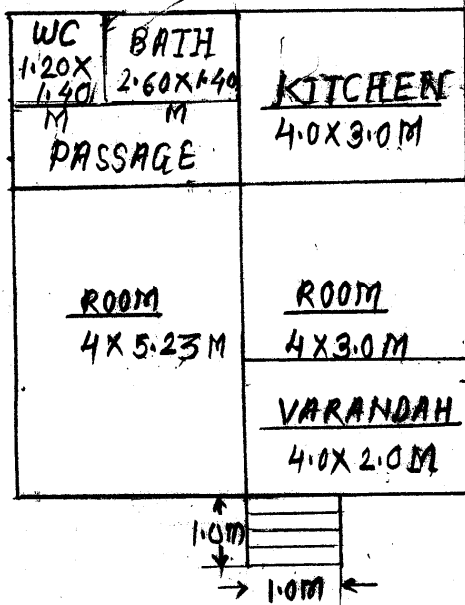 WC
1.20X
1.40
M
BATH
2.60X1.40
M
KITCHEN
4.0X3.0M
PASSAGE
ROOM
4X5.23M
ROOM
4X3.0M
VARANDAH
4.0X2.0M
1.0M
1.0M